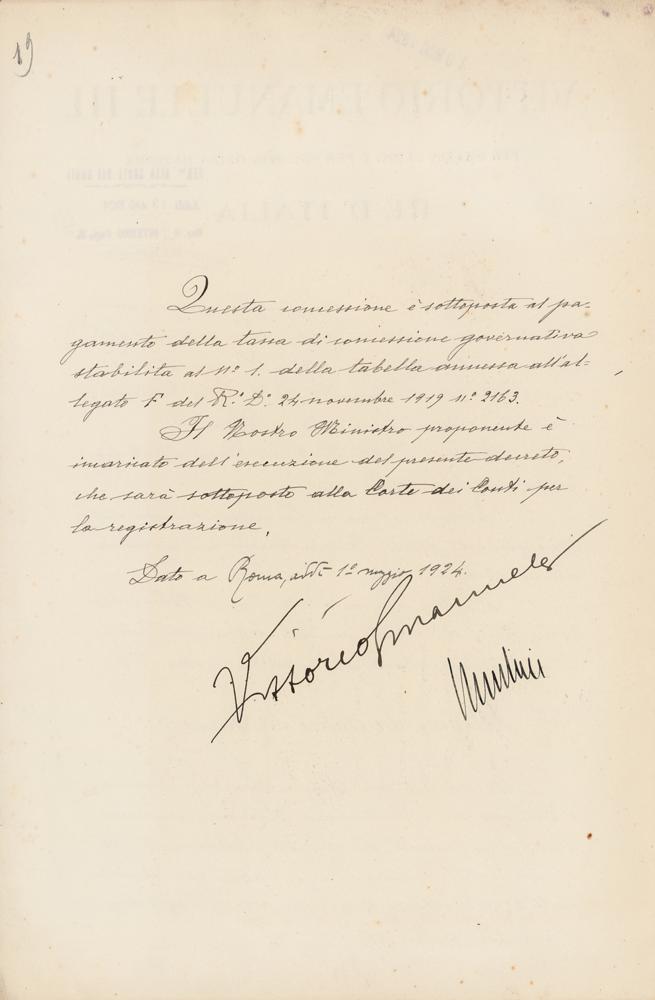 19
Questa concessione è sottoposta al pa-
gamento della tassa di concessione governativa
stabilita al n° 1. della tabella annessa all'al-
legato F del R.° D.° 24 novembre 1919 n.° 2163.
Il Nostro Ministro proponente è
incaricato dell'esecuzione del presente decreto,
che sarà sottoposto alla Corte dei Conti per
la registrazione.
Dato a Roma, addì 1° maggio 1924.
Vittorio Emanuele